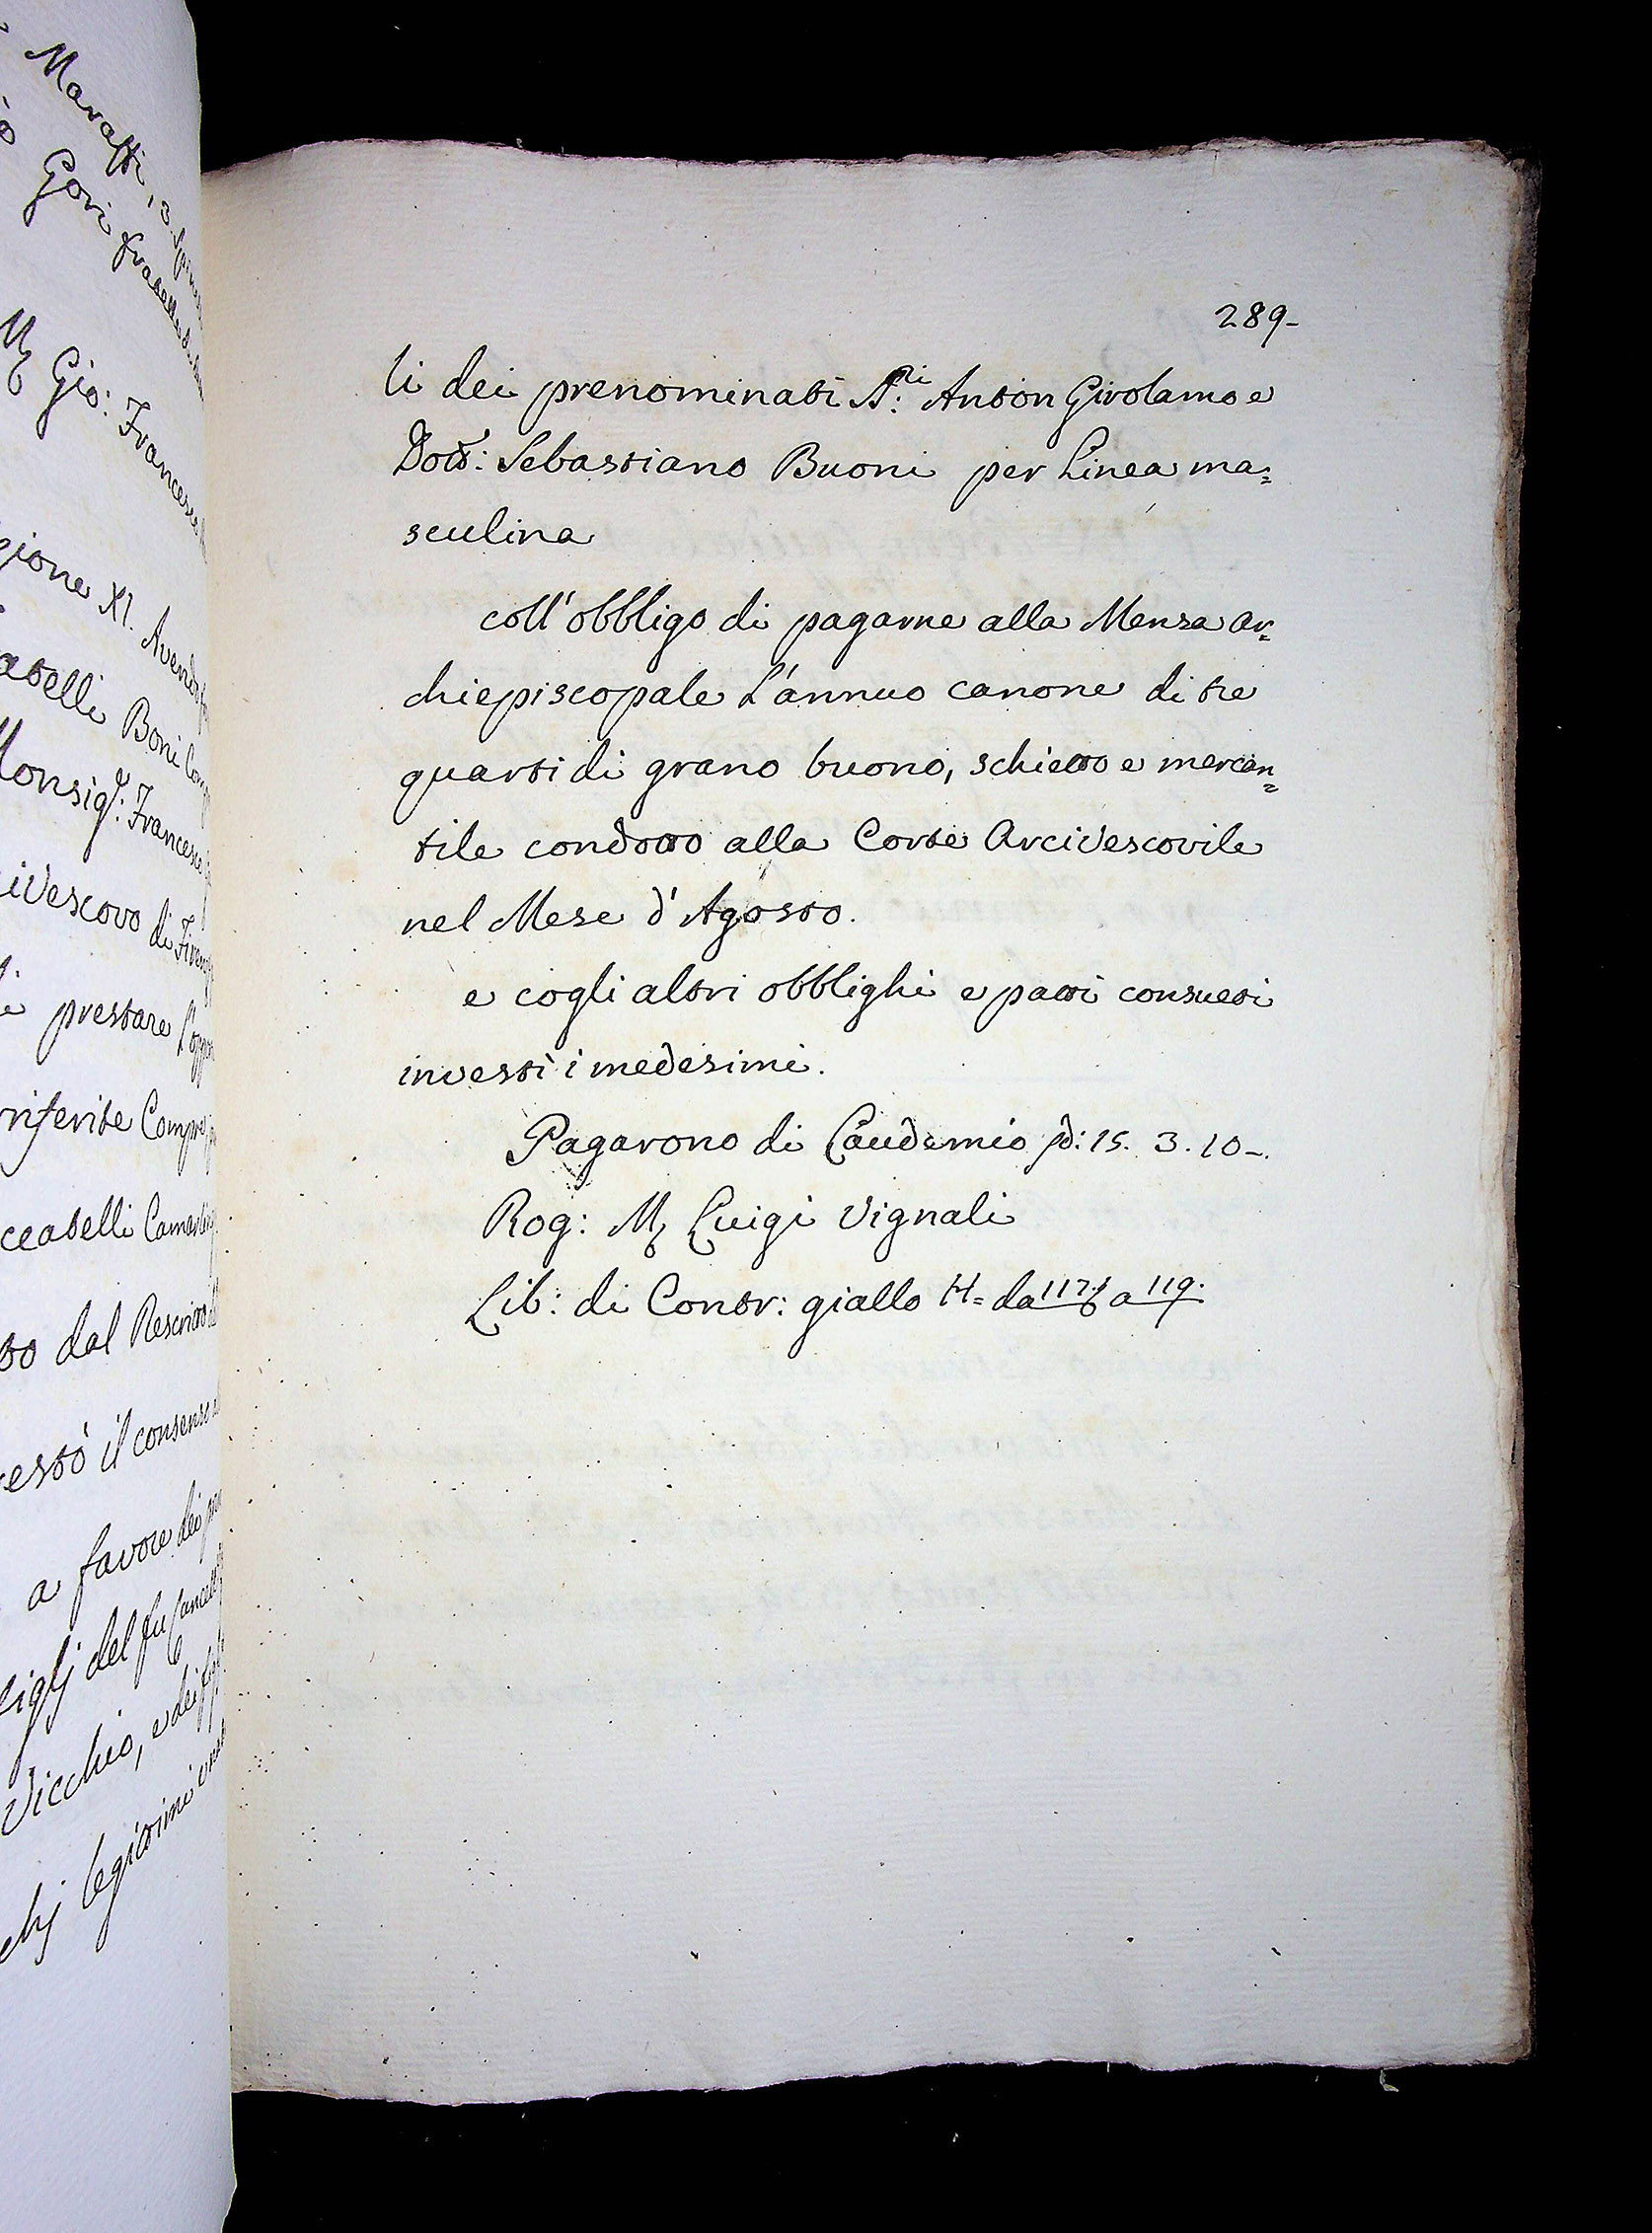 Maraffi, 3
Gori fratelli
M Gio: Francesco
gione XI. Avendo
atelli Boni
Monsig.r: Francesco
ivescovo di Firenz
prestare l'oppor
riferite Comp
ceatelli Camarling
to dal Rescritto
estò il consenso
a favore dei
figlj del fu Cancell
Vicchio, e dei figl
chj legittimi
289-
li dei prenominati SS.ri: Anton Girolamo e
Dott.: Sebastiano Buoni per Linea ma=
sculina
coll'obbligo di pagarne alla Mensa Ar=
chiepiscopale L'annuo canone di tre
quarti di grano buono, schietto e mercan=
tile condotto alla Corte Arcivescovile
nel Mese d'Agosto.
e cogli altri obblighi e patti consueti
investì i medesimi.
Pagarono di Laudemio ſd: 15. 3. 10-.
Rog: M Luigi Vignali
Lib: di Contr: giallo H= da 117. a 119.